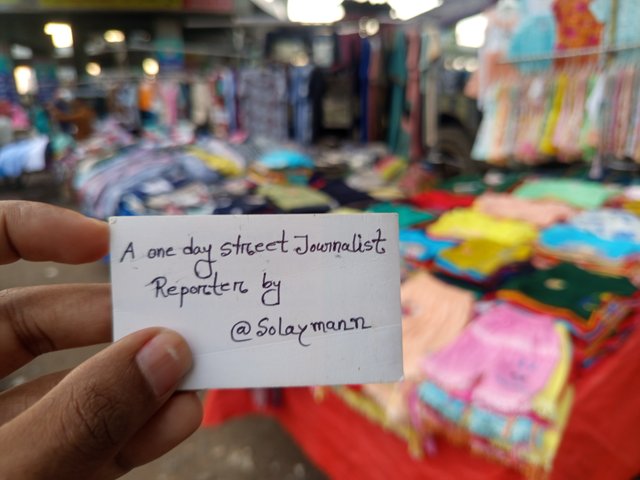 A one day street Journalist
Reporter by
@Solaymann